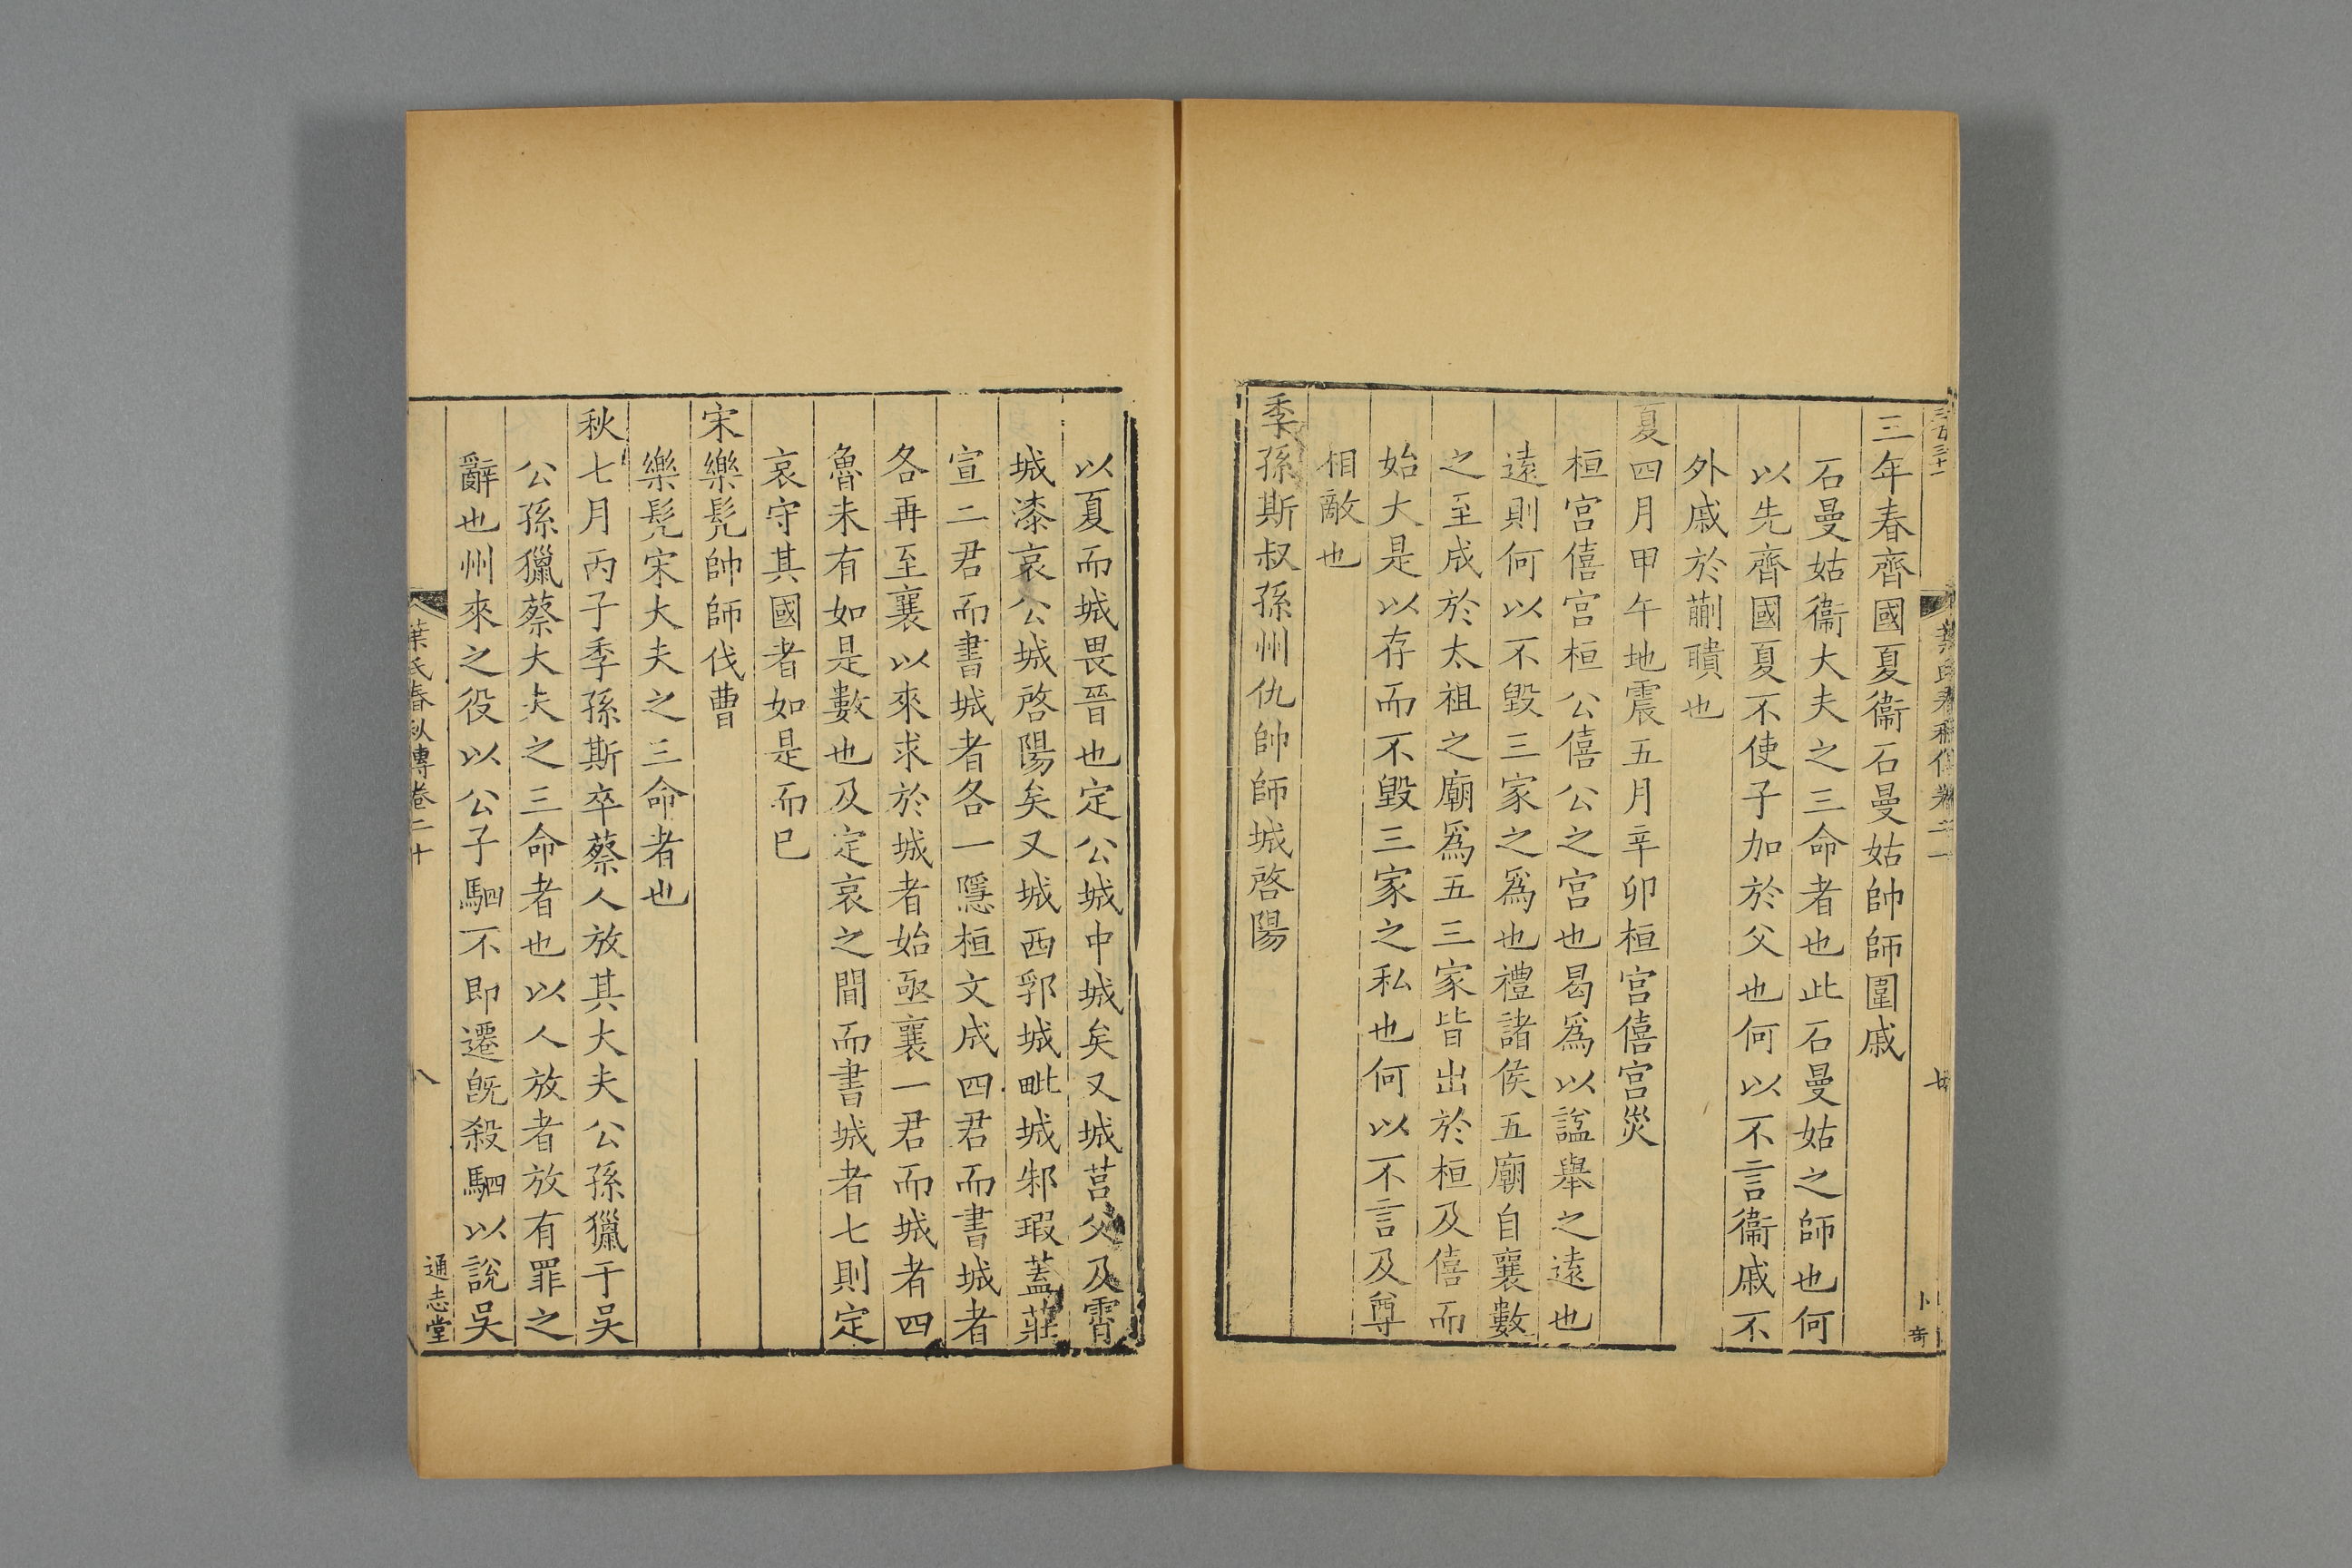 三年春齊國夏衞石曼姑帥師圍戚
石曼姑衞大夫之三命者也此石曼姑之師也何
以先齊國夏不使子加於父也何以不言衞戚不
外戚於蒯聵也
夏四月甲午地震五月辛卯桓宮僖宮災
桓宮僖宮桓公僖公之宮也曷爲以諡舉之遠也
遠則何以不毀三家之爲也禮諸侯五廟自襄數
之至成於太祖之廟爲五三家皆出於桓及僖而
始大是以存而不毀三家之私也何以不言及尊
相敵也
季孫斯叔孫州仇帥師城啓陽
以夏而城畏晉也定公城中城矣又城莒父及霄
城漆哀公城啓陽矣又城西郛城毗城邾瑕蓋莊
宣二君而書城者各一隱桓文成四君而書城者
各再至襄以來求於城者始亟襄一君而城者四
魯未有如是數也及定哀之間而書城者七則定
哀守其國者如是而已
宋樂髡帥師伐曹
樂髡宋大夫之三命者也
秋七月丙子季孫斯卒蔡人放其大夫公孫獵于吳
公孫獵蔡大夫之三命者也以人放者放有罪之
辭也州來之役以公子駟不即遷旣殺駟以說吳
葉氏春秋傳卷二十
八
通志堂